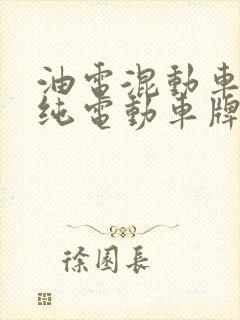 油電混動車
纯電動車牌
徐園長